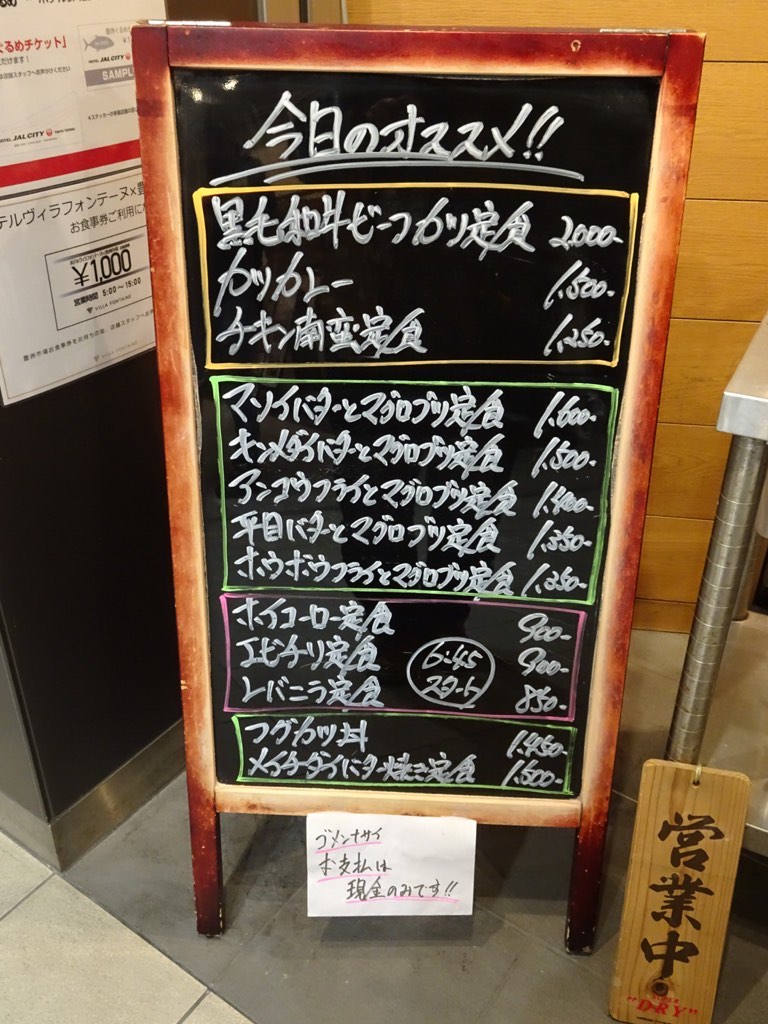 るめチケット」
だけます!
HOTEL JAL CITY
SAMPL
HOTEL JAL CITY
テルヴィラフォンテーヌ×豊
お食事券ご利用に
¥1,000
営業時間 5:00〜15:00
VILLA FONTAINE
今日のオススメ!!
黒毛和牛ビーフカツ定食 2,000-
カツカレー 1,500-
チキン南蛮定食 1,250-
マソイバターとマグロブツ定食 1,600-
キンメダイバターとマグロブツ定食 1,500-
アンコウフライとマグロブツ定食 1,400-
平目バターとマグロブツ定食 1,350-
ホウボウフライとマグロブツ定食 1,350-
ホイコーロー定食 900-
エビチリ定食 900-
レバニラ定食 850-
6:45
スタート
フグカツ丼 1,450-
メイチダイバター焼き定食 1,500-
ゴメンナサイ
お支払は
現金のみです!!
営業中
"DRY"